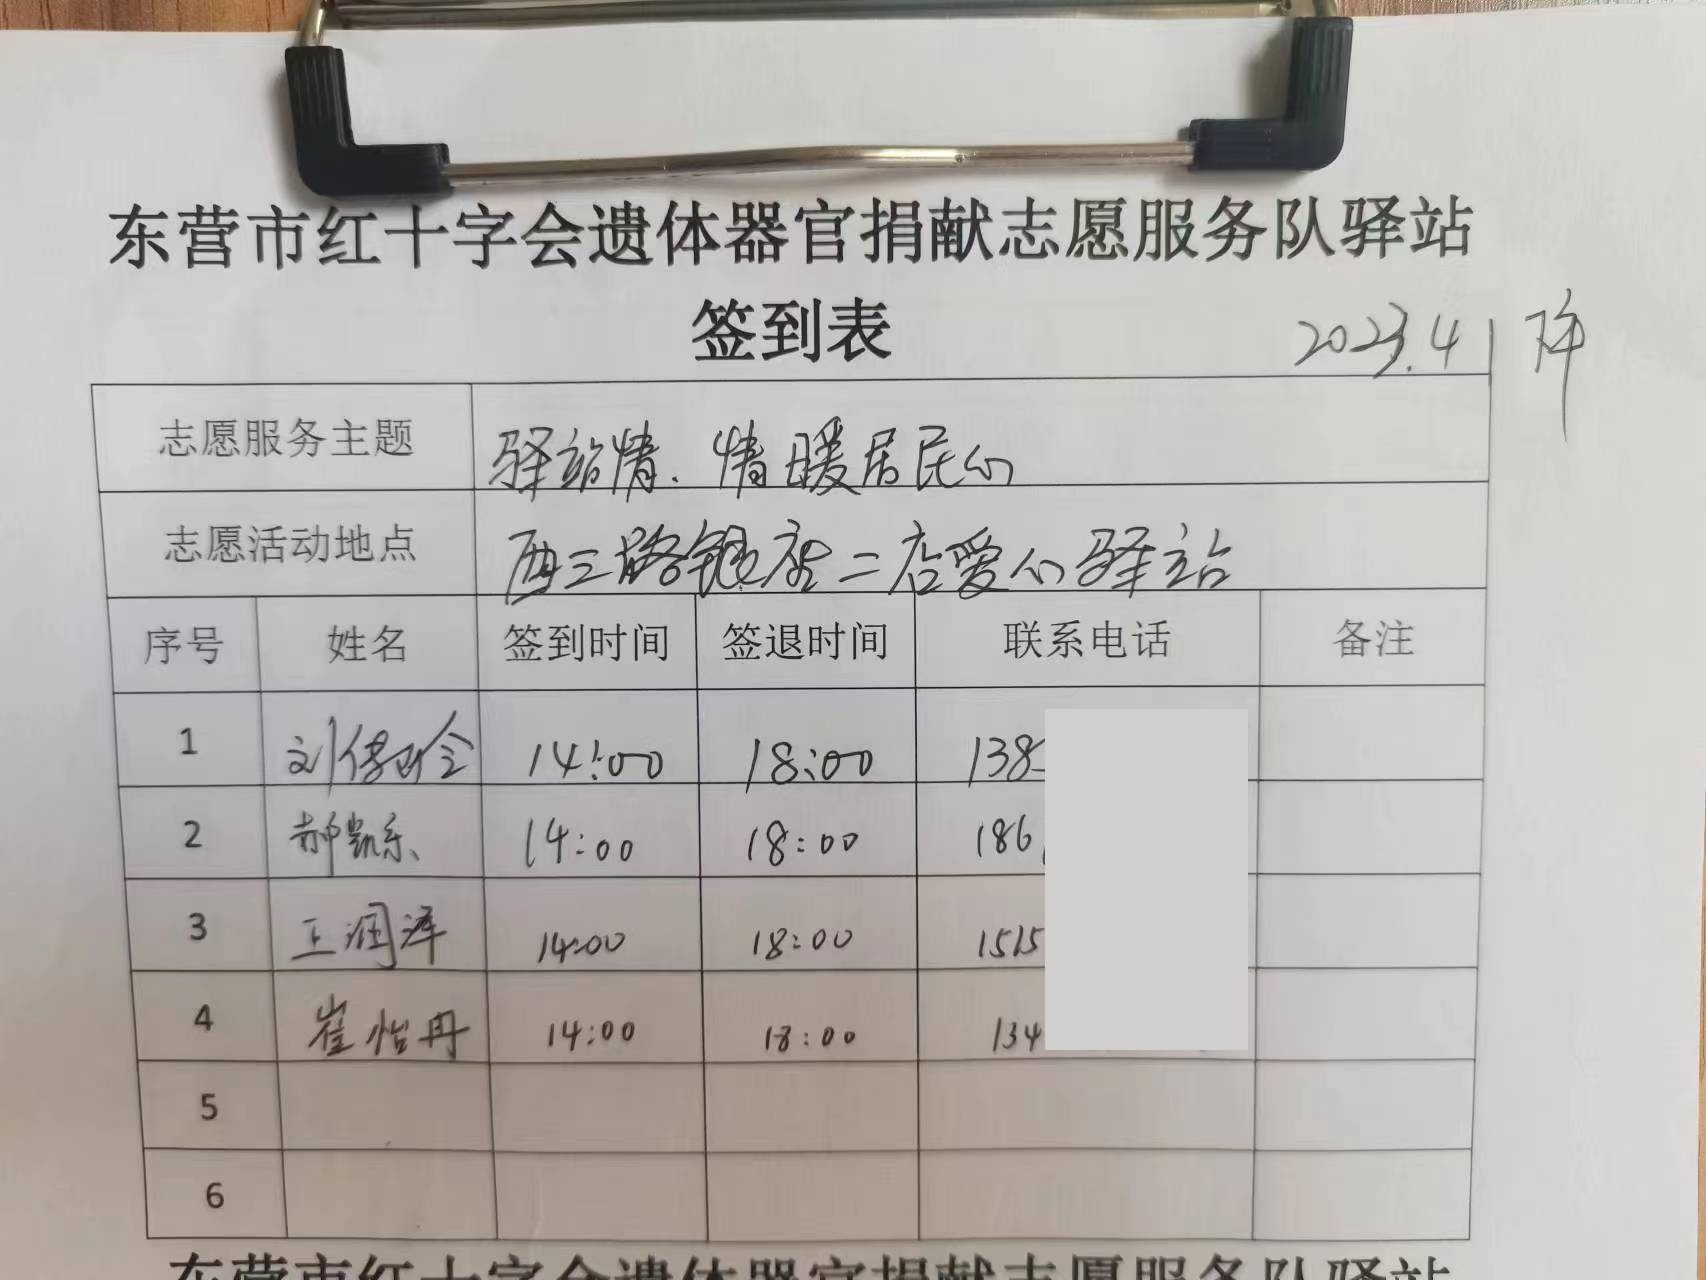 东营市红十字会遗体器官捐献志愿服务队驿站
签到表
2023.4.1 下午
志愿服务主题 驿站情.情暖居民心
志愿活动地点 西三路银座二店爱心驿站
序号 姓名 签到时间 签退时间 联系电话 备注
1 刘 14:00 18:00 138
2 郝凯乐 14:00 18:00 186
3 王润泽 14:00 18:00 1515
4 崔怡冉 14:00 18:00 134
5
6
东营市红十字会遗体器官捐献志愿服务队驿站